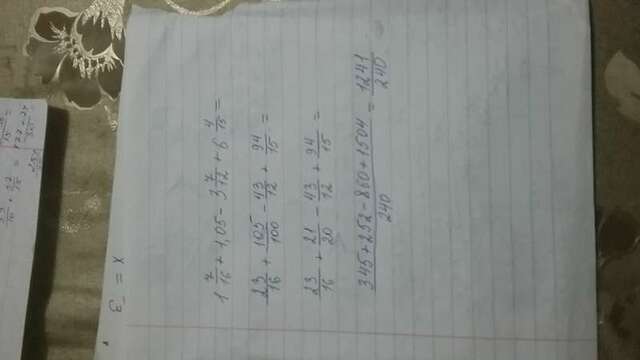 x = -3
1 7/16 + 1,05 - 3 7/12 + 6 4/15 =
23/16 + 105/100 - 43/12 + 94/15 =
23/16 + 21/20 - 43/12 + 94/15 =
(345+252-860+1504)/240 = 1241/240